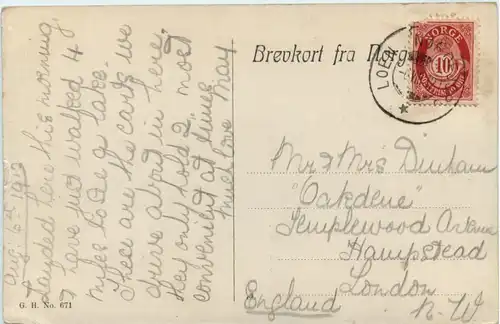 Brevkort fra Norge
LOEN
NORGE
10
Aug. 6th 1912
Landed here this morning
I have just walked 40
miles to see a lake.
These are the carts we
drive about in here,
they only hold 2, most
convenient at times
Much love May.
Mr & Mrs Dunham
"Oakdene"
Templewood Avenue
Hampstead
London
England N.W
G. H. No. 671